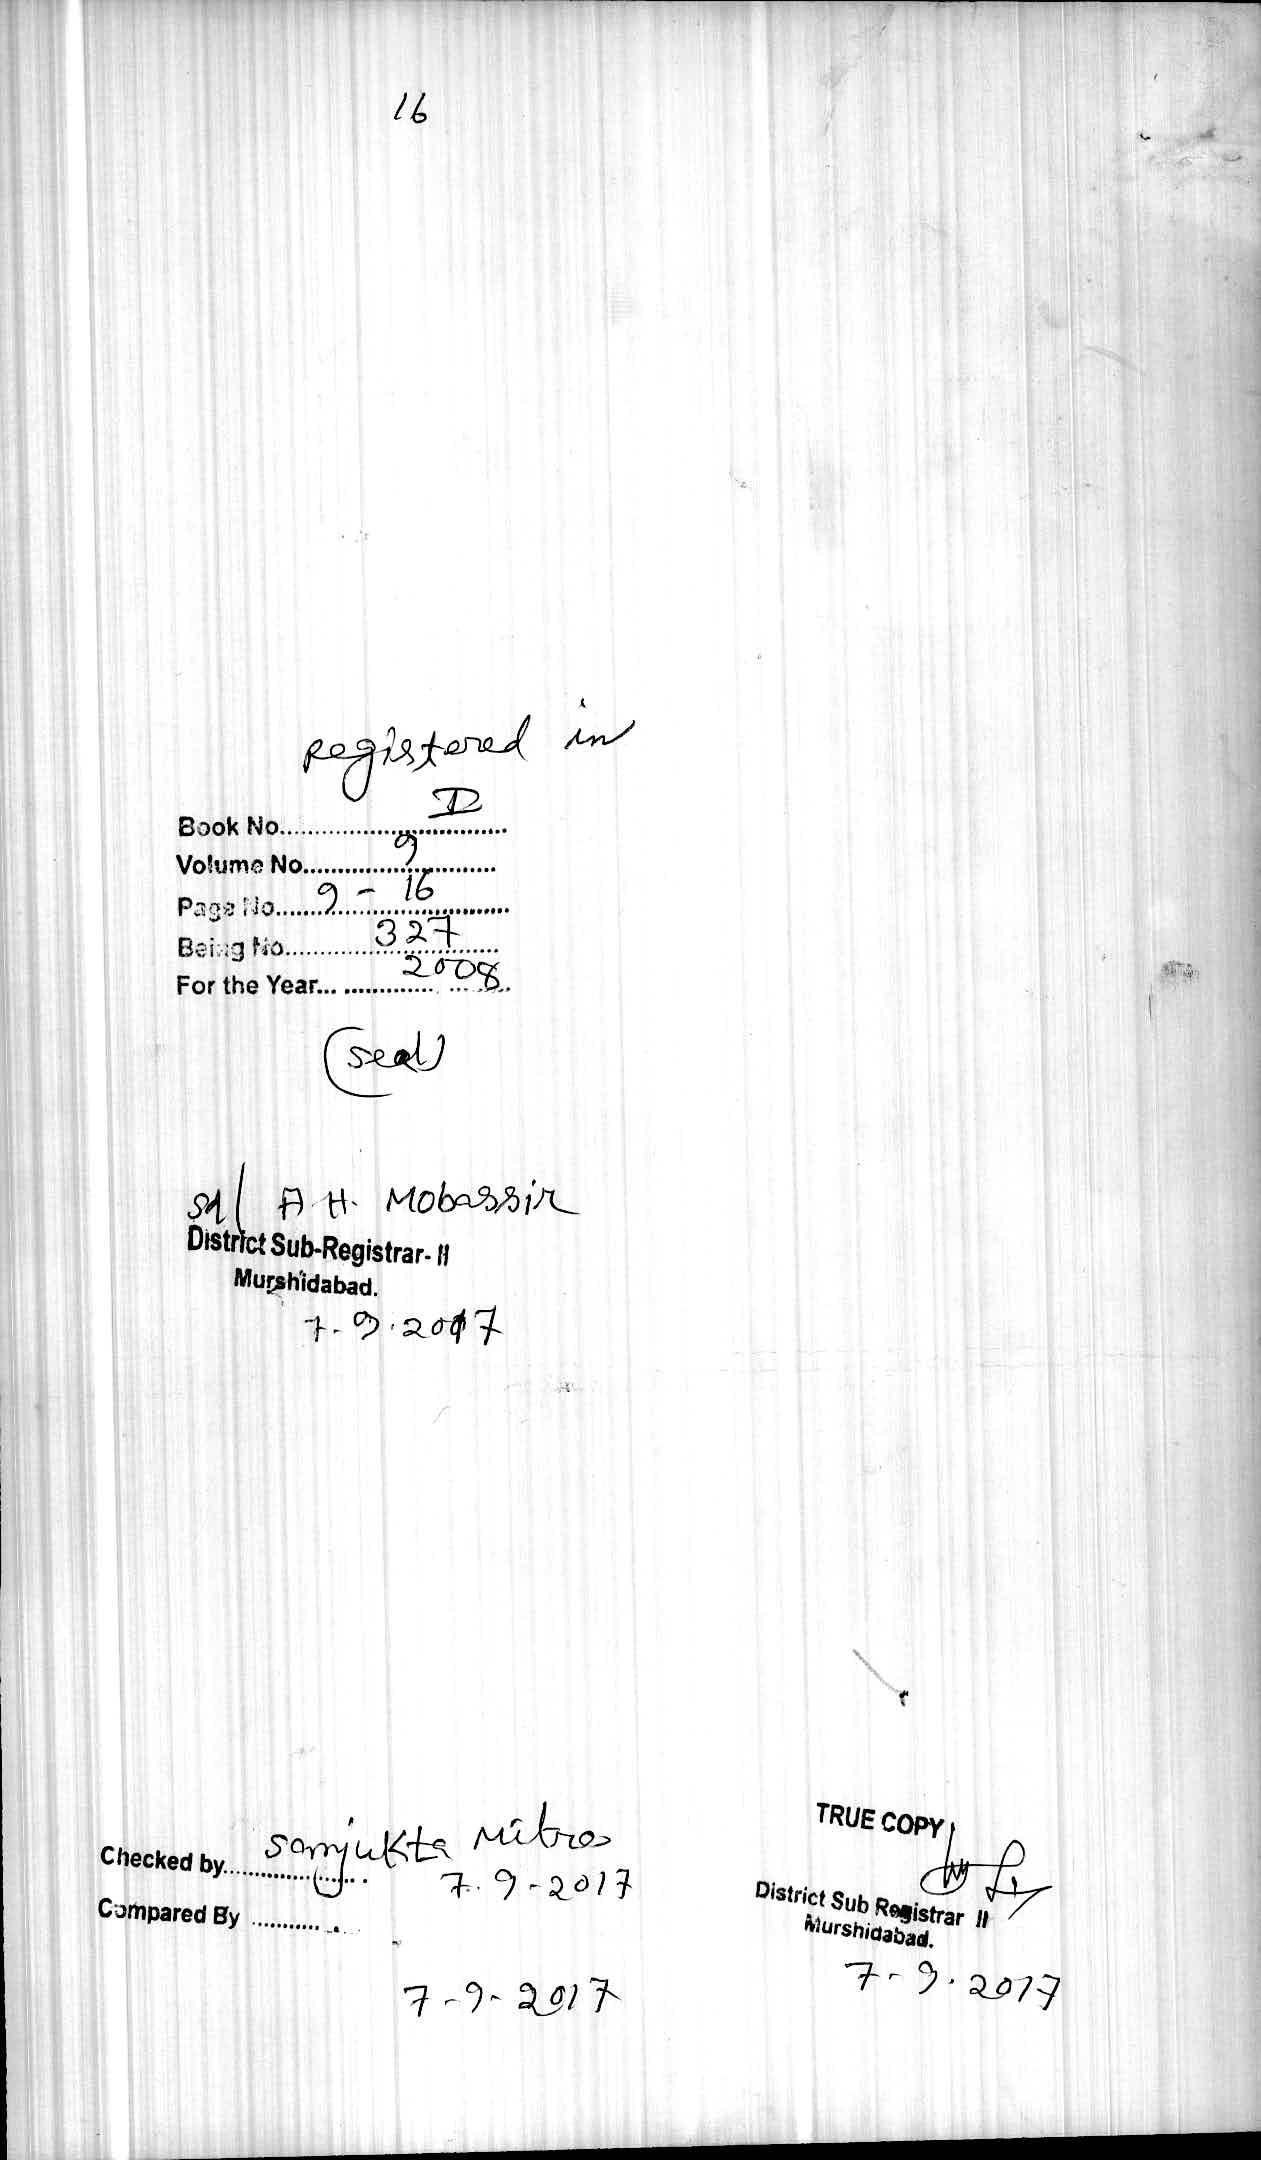 16
registered in
Book No.................... I
Volume No.................... 9
Page No....... 9 - 16
Being No.................... 327
For the Year... 2008
(seal)
sd/ A H. Mobassir
District Sub-Registrar- II
Murshidabad.
7.9.2017
Checked by.................... Sanjukta Mitra
7.9-2017
Compared By ....................
7-9-2017
TRUE COPY
District Sub Registrar II
Murshidabad.
7-9.2017